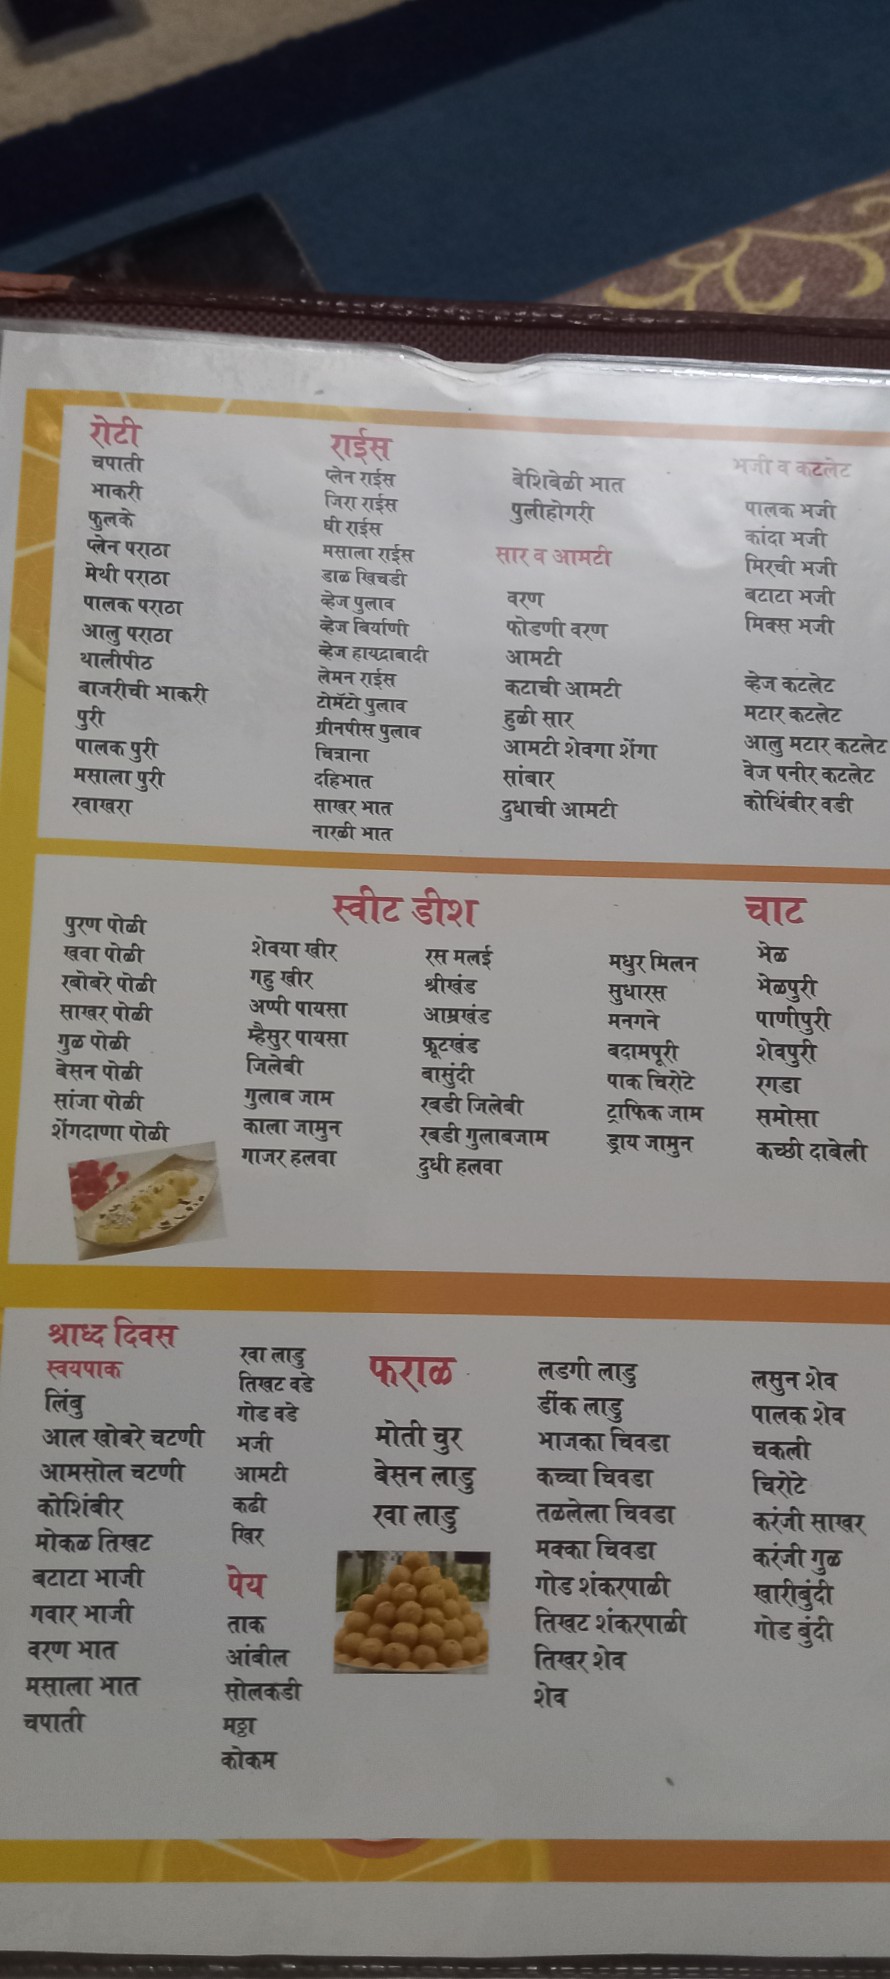 रोटी
चपाती
भाकरी
फुलके
प्लेन पराठा
मेथी पराठा
पालक पराठा
आलु पराठा
थालीपीठ
बाजरीची भाकरी
पुरी
पालक पुरी
मसाला पुरी
खाखरा
राईस
प्लेन राईस
जिरा राईस
घी राईस
मसाला राईस
डाळ खिचडी
व्हेज पुलाव
व्हेज बिर्याणी
व्हेज हायद्राबादी
लेमन राईस
टोमॅटो पुलाव
ग्रीनपीस पुलाव
चित्राना
दहिभात
साखर भात
नारळी भात
बेशिबेळी भात
पुलीहोगरी
सार व आमटी
वरण
फोडणी वरण
आमटी
कटाची आमटी
हुळी सार
आमटी शेवगा शेंगा
सांबार
दुधाची आमटी
भजी व कटलेट
पालक भजी
कांदा भजी
मिरची भजी
बटाटा भजी
मिक्स भजी
व्हेज कटलेट
मटार कटलेट
आलु मटार कटलेट
वेज पनीर कटलेट
कोथिंबीर वडी
स्वीट डीश
पुरण पोळी
खवा पोळी
खोबरे पोळी
साखर पोळी
गुळ पोळी
बेसन पोळी
सांजा पोळी
शेंगदाणा पोळी
शेवया खीर
गहु खीर
अप्पी पायसा
म्हैसुर पायसा
जिलेबी
गुलाब जाम
काला जामुन
गाजर हलवा
रस मलई
श्रीखंड
आम्रखंड
फ्रूटखंड
बासुंदी
रबडी जिलेबी
रबडी गुलाबजाम
दुधी हलवा
मधुर मिलन
सुधारस
मनगने
बदामपूरी
पाक चिरोटे
ट्राफिक जाम
ड्राय जामुन
चाट
भेळ
भेळपुरी
पाणीपुरी
शेवपुरी
रगडा
समोसा
कच्छी दाबेली
श्राध्द दिवस
स्वयपाक
लिंबु
आल खोबरे चटणी
आमसोल चटणी
कोशिंबीर
मोकळ तिखट
बटाटा भाजी
गवार भाजी
वरण भात
मसाला भात
चपाती
रवा लाडु
तिखट वडे
गोड वडे
भजी
आमटी
कढी
खिर
पेय
ताक
आंबील
सोलकडी
मठ्ठा
कोकम
फराळ
मोती चुर
बेसन लाडु
रवा लाडु
लडगी लाडु
डींक लाडु
भाजका चिवडा
कच्चा चिवडा
तळलेला चिवडा
मक्का चिवडा
गोड शंकरपाळी
तिखट शंकरपाळी
तिखर शेव
शेव
लसुन शेव
पालक शेव
चकली
चिरोटे
करंजी साखर
करंजी गुळ
खारीबुंदी
गोड बुंदी